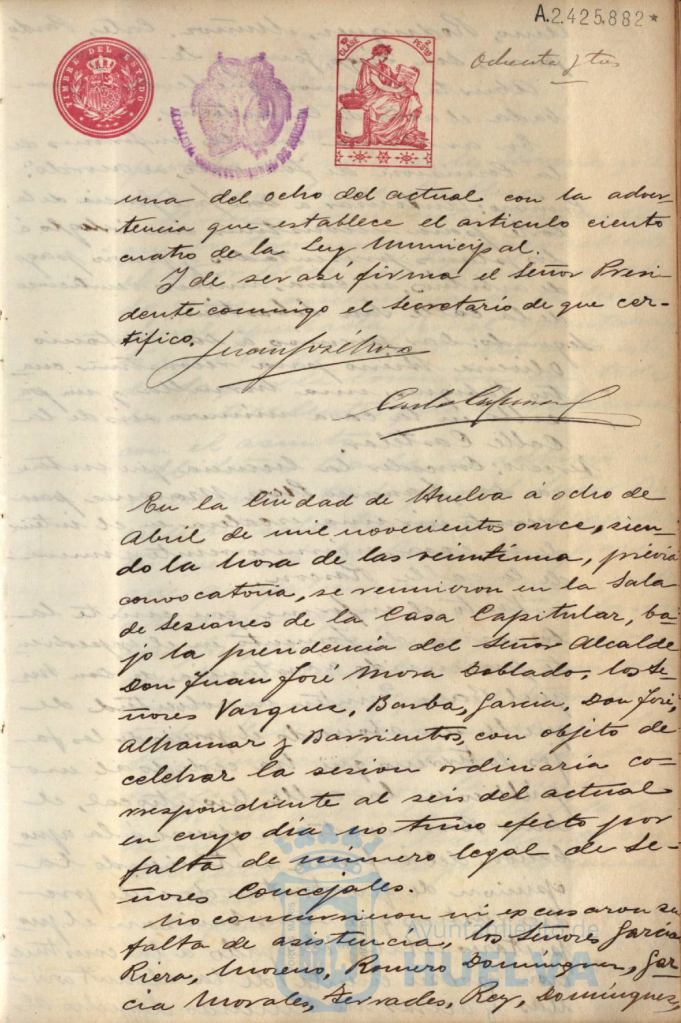 A.2.425.882*
Ochenta y tres
TIMBRE DEL ESTADO
2ª CLASE PESETAS
ALCALDIA CONSTITUCIONAL DE HUELVA
una del ocho del actual con la adver-
tencia que establece el articulo ciento
cuatro de la Ley Municipal.
Y de ser asi firma el Señor Presi-
dente conmigo el Secretario de que cer-
tifico.
Juan José Mora
En la Ciudad de Huelva á ocho de
Abril de mil novecientos once, sien-
do la hora de las veintiuna, prévia
convocatoria, se reunieron en la Sala
de Sesiones de la Casa Capitular, ba-
jo la presidencia del Señor Alcalde
Don Juan José Mora Doblado, los Se-
ñores Vazquez, Barba, Garcia, Don José,
Alhamar y Barrientos, con objeto de
celebrar la sesion ordinaria co-
rrespondiente al seis del actual
en cuyo dia no tuvo efecto por
falta de número legal de Se-
ñores Concejales.
No concurrieron ni excusaron su
falta de asistencia, los Señores Garcia
Riera, Moreno, Romero Dominguez, Gar-
cia Morales, Terrades, Rey, Dominguez,
Ayuntamiento de
HUELVA